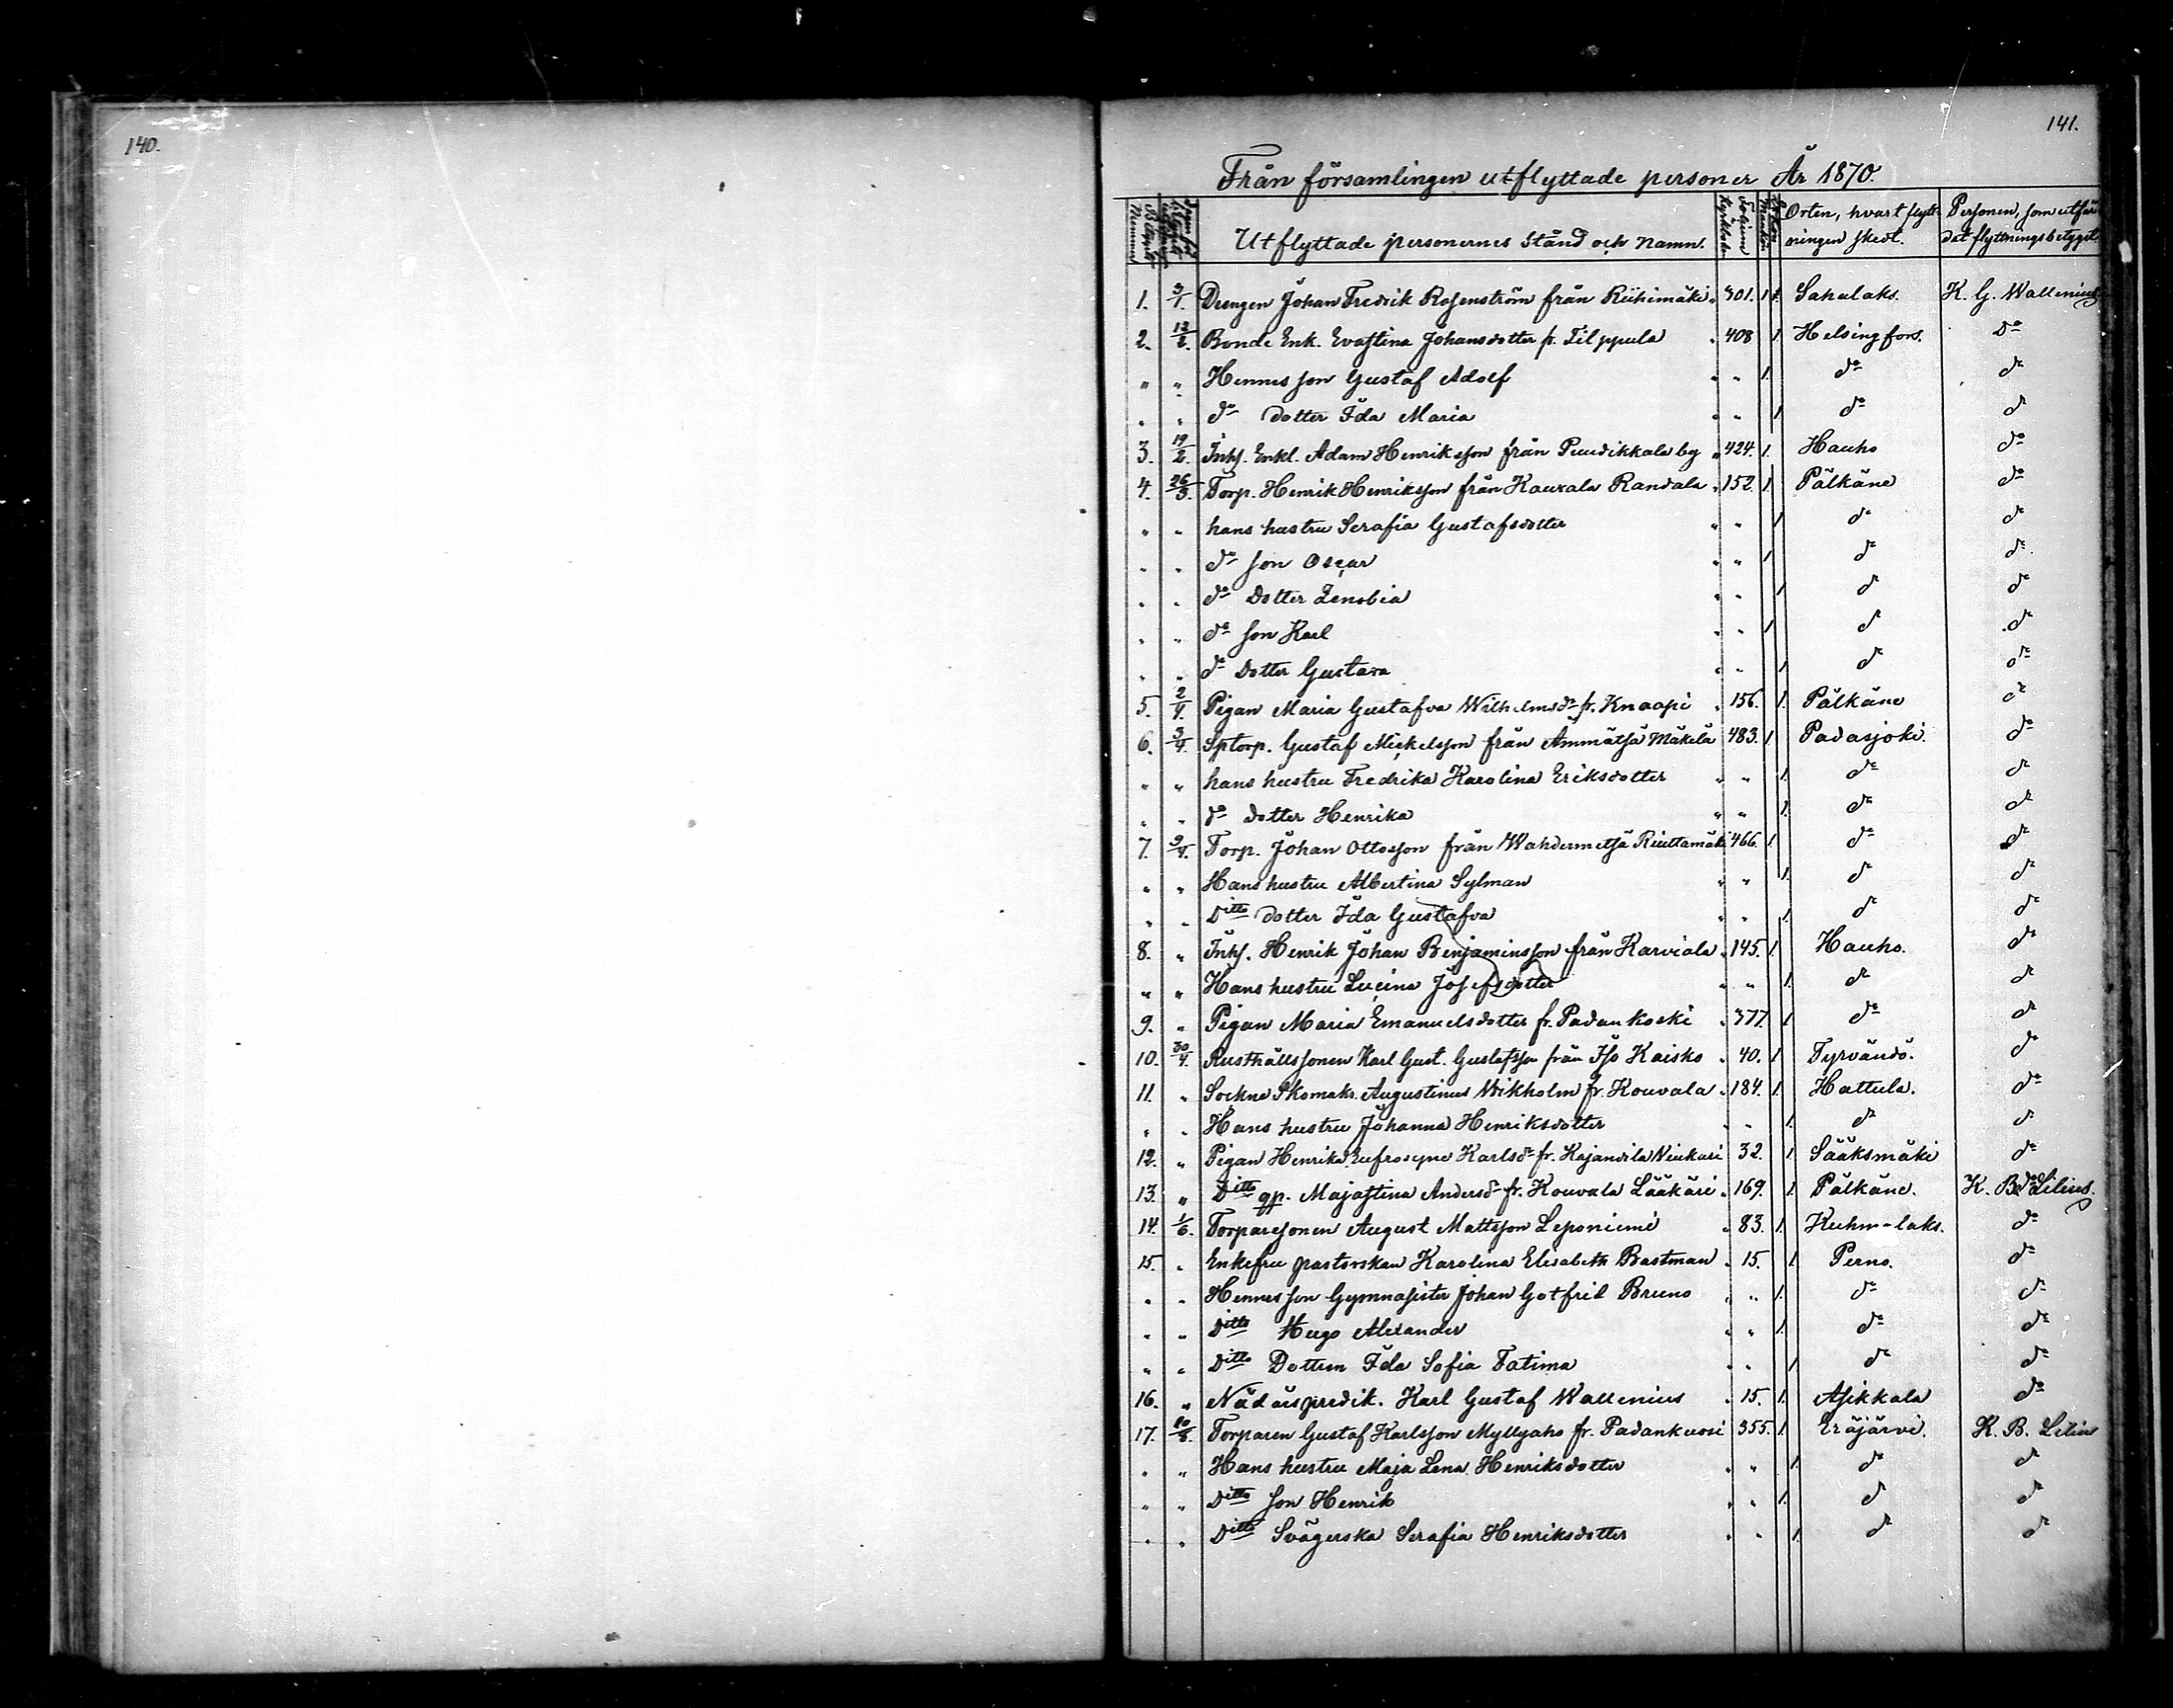 140.
141.
Från församlingen utflyttade personer År 1870.
Utflyttade personernes Stånd och Namn. Orten, hvart flytt- Personen, som utfär
ningen skedt. dat flyttningsbetyget
1. 3/1. Drengen Johan Fredrik Rosenström från Riihimäki 301. 1 Sahalaks. K. G. Wallenius
2. 12/2. Bonde Enk. Evastina Johansdotter fr. Tilppula 408 1. Helsingfors. Do
" " Hennes son Gustaf Adolf " " 1. do do
" " do dotter Ida Maria " " 1. do do
3. 19/2. Inhs. Enkl. Adam Henriksson från Puudikkala by 424. 1. Hauho do
4. 26/3. Torp. Henrik Henriksson från Kauxala Randala 152. 1. Pälkäne do
" " hans hustru Serafia Gustafsdotter " " 1. do do
" " do son Oscar " " 1. do do
" " do Dotter Zenobia " " 1. do do
" " do son Karl " " 1. do do
" " do Dotter Gustava " " 1. do do
5. 2/4. Pigan Maria Gustafva Wilhelmsdr fr. Knaapi 156. 1. Pälkäne do
6. 3/4. Sptorp. Gustaf Mickelsson från Ämmätsä Mäkelä 483. 1. Padasjoki. do
" " hans hustru Fredrika Karolina Eriksdotter " " 1. do do
" " do dotter Henrika " " 1. do do
7. 9/4. Torp. Johan Ottosson från Wahdermetsä Riuttamäki 466. 1. do do
" " Hans hustru Albertina Sylman " " 1. do do
" " Ditto dotter Ida Gustafva " " 1. do do
8. " Inhs. Henrik Johan Benjaminsson från Karviala 145. 1. Hauho. do
" " Hans hustru Lucina Josefsdotter " " 1. do do
9. " Pigan Maria Emanuelsdotter fr. Padankoski 377. 1. do do
10. 30/4. Rusthållssonen Karl Gust. Gustafsson från Iso Kaisko 40. 1. Tyrvändö. do
11. " Sockne Skomak. Augustinus Wikholm fr. Kouvala 184. 1. Hattula. do
" " Hans hustru Johanna Henriksdotter " " 1. do do
12. " Pigan Henrika Eufrosyne Karlsdr fr. Kajandila Niukari 32. 1. Sääksmäki do
13. " Ditto qp. Majastina Andersdr fr. Kouvala Lääkäri 169. 1. Pälkäne. K. B. Lilius.
14. 1/6. Torparesonen August Mattsson Leponiemi 83. 1. Kuhmalaks. do
15. " Enkefru pastorskan Karolina Elisabeth Bastman 15. 1. Perno. do
" " Hennes son Gymnasisten Johan Gotfrid Bruno " " 1. do do
" " Ditto Hugo Alexander " " 1. do do
" " Ditto Dottren Ida Sofia Fatima " " 1. do do
16. " Nådårspredik. Karl Gustaf Wallenius 15. 1. Asikkala do
17. Torparen Gustaf Karlsson Myllyaho fr. Padankuosi 355. 1. Eräjärvi. K. B. Liliu
" " Hans hustru Maja Lena Henriksdotter " " 1. do do
" " Ditto son Henrik " " 1. do do
" " Ditto Svägerska Serafia Henriksdotter " " 1. do do